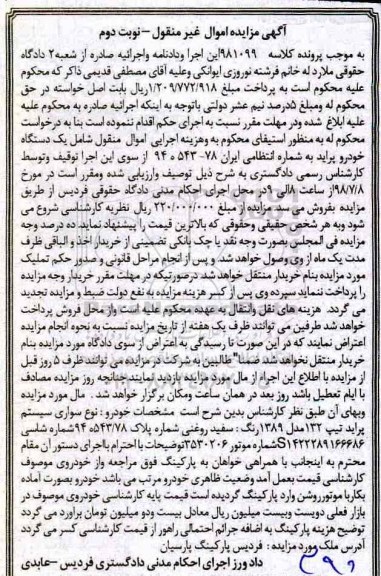 آگهی مزایده اموال غیر منقول –نوبت دوم
به موجب پرونده کلاسه ۹۸۱۰۹۹این اجرا ودادنامه واجرائیه صادره از شعبه۲ دادگاه
حقوقی ملارد له خانم فرشته نوروزی ایوانکی وعلیه آقای مصطفی قدیمی ذاکر که محکوم
علیه محکوم است به پرداخت مبلغ ۱/۲۰۹/۷۷۲/۹۱۸ریال بابت اصل خواسته در حق
محکوم له ومبلغ ۵درصد نیم عشر دولتی باتوجه به اینکه اجرائیه صادره به محکوم علیه
علیه ابلاغ شده ودر مهلت مقرر نسبت به اجرای حکم اقدام ننموده است بنا به درخواست
محکوم له به منظور استیفای محکوم به وهزینه اجرایی اموال منقول شامل یک دستگاه
خودرو پراید به شماره انتظامی ایران ۷۸- ۵۴۳ ه ۹۴ از سوی این اجرا توقیف وتوسط
کارشناس رسمی دادگستری به شرح ذیل توصیف وارزیابی شده ومقرر است در مورخ
۹۸/۷/۸از ساعت ۸الی ۹ در محل اجرای احکام مدنی دادگاه حقوقی فردیس از طریق
مزایده بفروش می رسد.مزایده از مبلغ ۲۲۰/۰۰۰/۰۰۰ ریال نظریه کارشناسی شروع می
شود وبه هر شخص حقیقی وحقوقی که بالاترین قیمت را پیشنهاد نماید. ده درصد وجه
مزایده فی المجلس بصورت وجه نقد یا چک بانکی تضمینی از خریدار اخذ و الباقی ظرف
مدت یک ماه از وی وصول خواهد شد. و پس از انجام مراحل قانونی و صدور حکم تملیک
مورد مزایده بنام خریدار منتقل خواهد شد. درصورتیکه در مهلت مقرر خریدار وجه مزایده
را پرداخت ننماید سپرده وی پس از کسر هزینه مزایده به نفع دولت ضبط و مزایده تجدید
می گردد. هزینه های نقل وانتقال به عهده محکوم علیه است واز محل فروش پرداخت
خواهد شد طرفین می توانند ظرف یک هفته از تاریخ مزایده نسبت به نحوه انجام مزایده
اعتراض نمایند که در این صورت تا رسیدگی به اعتراض از سوی دادگاه مورد مزایده بنام
خریدار منتقل نخواهد شد. ضمنا" طالبین به شرکت در مزایده می توانند ظرف ۵ روز قبل
از مزایده با اطلاع این اجرا، از مال مورد مزایده بازدید نمایند.چنانچه روز مزایده مصادف
با ایام تعطیل باشد روز بعد در همان ساعت ومکان برگزار خواهد شد. مال مورد مزایده
وبهای آن طبق نظر کارشناس بدین شرح است مشخصات خودرو : نوع سواری سیستم
پراید تیپ ۱۳۲مدل ۱۳۸۹رنگ : سفید روغنی شماره پلاک ۵۴۳/۷۸ه ۹۴ شماره شاسی
S۱۴۲۲۲۸۹۱۶۶۶۸۶شماره موتور ۳۵۳۰۲۰۶توضیحات با احترام بااجرای دستور آن مقام
محترم به اینجانب با همراهی خواهان به پارکینگ فوق مراجعه واز خودروی موصوف
کارشناسی قیمت بعمل آمد وضعیت ظاهری خودرو مرتب می باشد خودرو بصورت آماده
بکاربا موتورروشن وارد پارکینگ گردیده است قیمت پایه کارشناسی خودروی موصوف در
بازار فعلی دویست وبیست میلیون ریال معادل بیست ودو میلیون تومان براورد می گردد
توضیح هزینه پارکینگ به اضافه جرائم احتمالی راهور از قیمت کارشناسی کسر می گردد
آدرس ملک مورد مزایده : فردیس پارکینگ پارسیان
داد ورز اجرای احکام مدنی دادگستری فردیس –عابدی